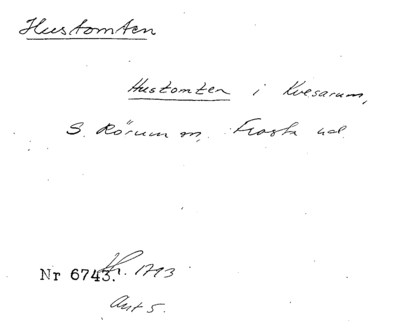 Hustomten
Hustomten i Kvesarum,
S. Rörum sn, Frosta hd.
Nr 6743. 1793
Avt 5.